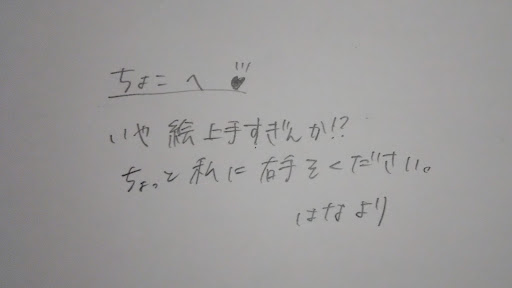 ちょこへ
いや絵上手すぎんか!?
ちょっと私に右手をください。
はなより